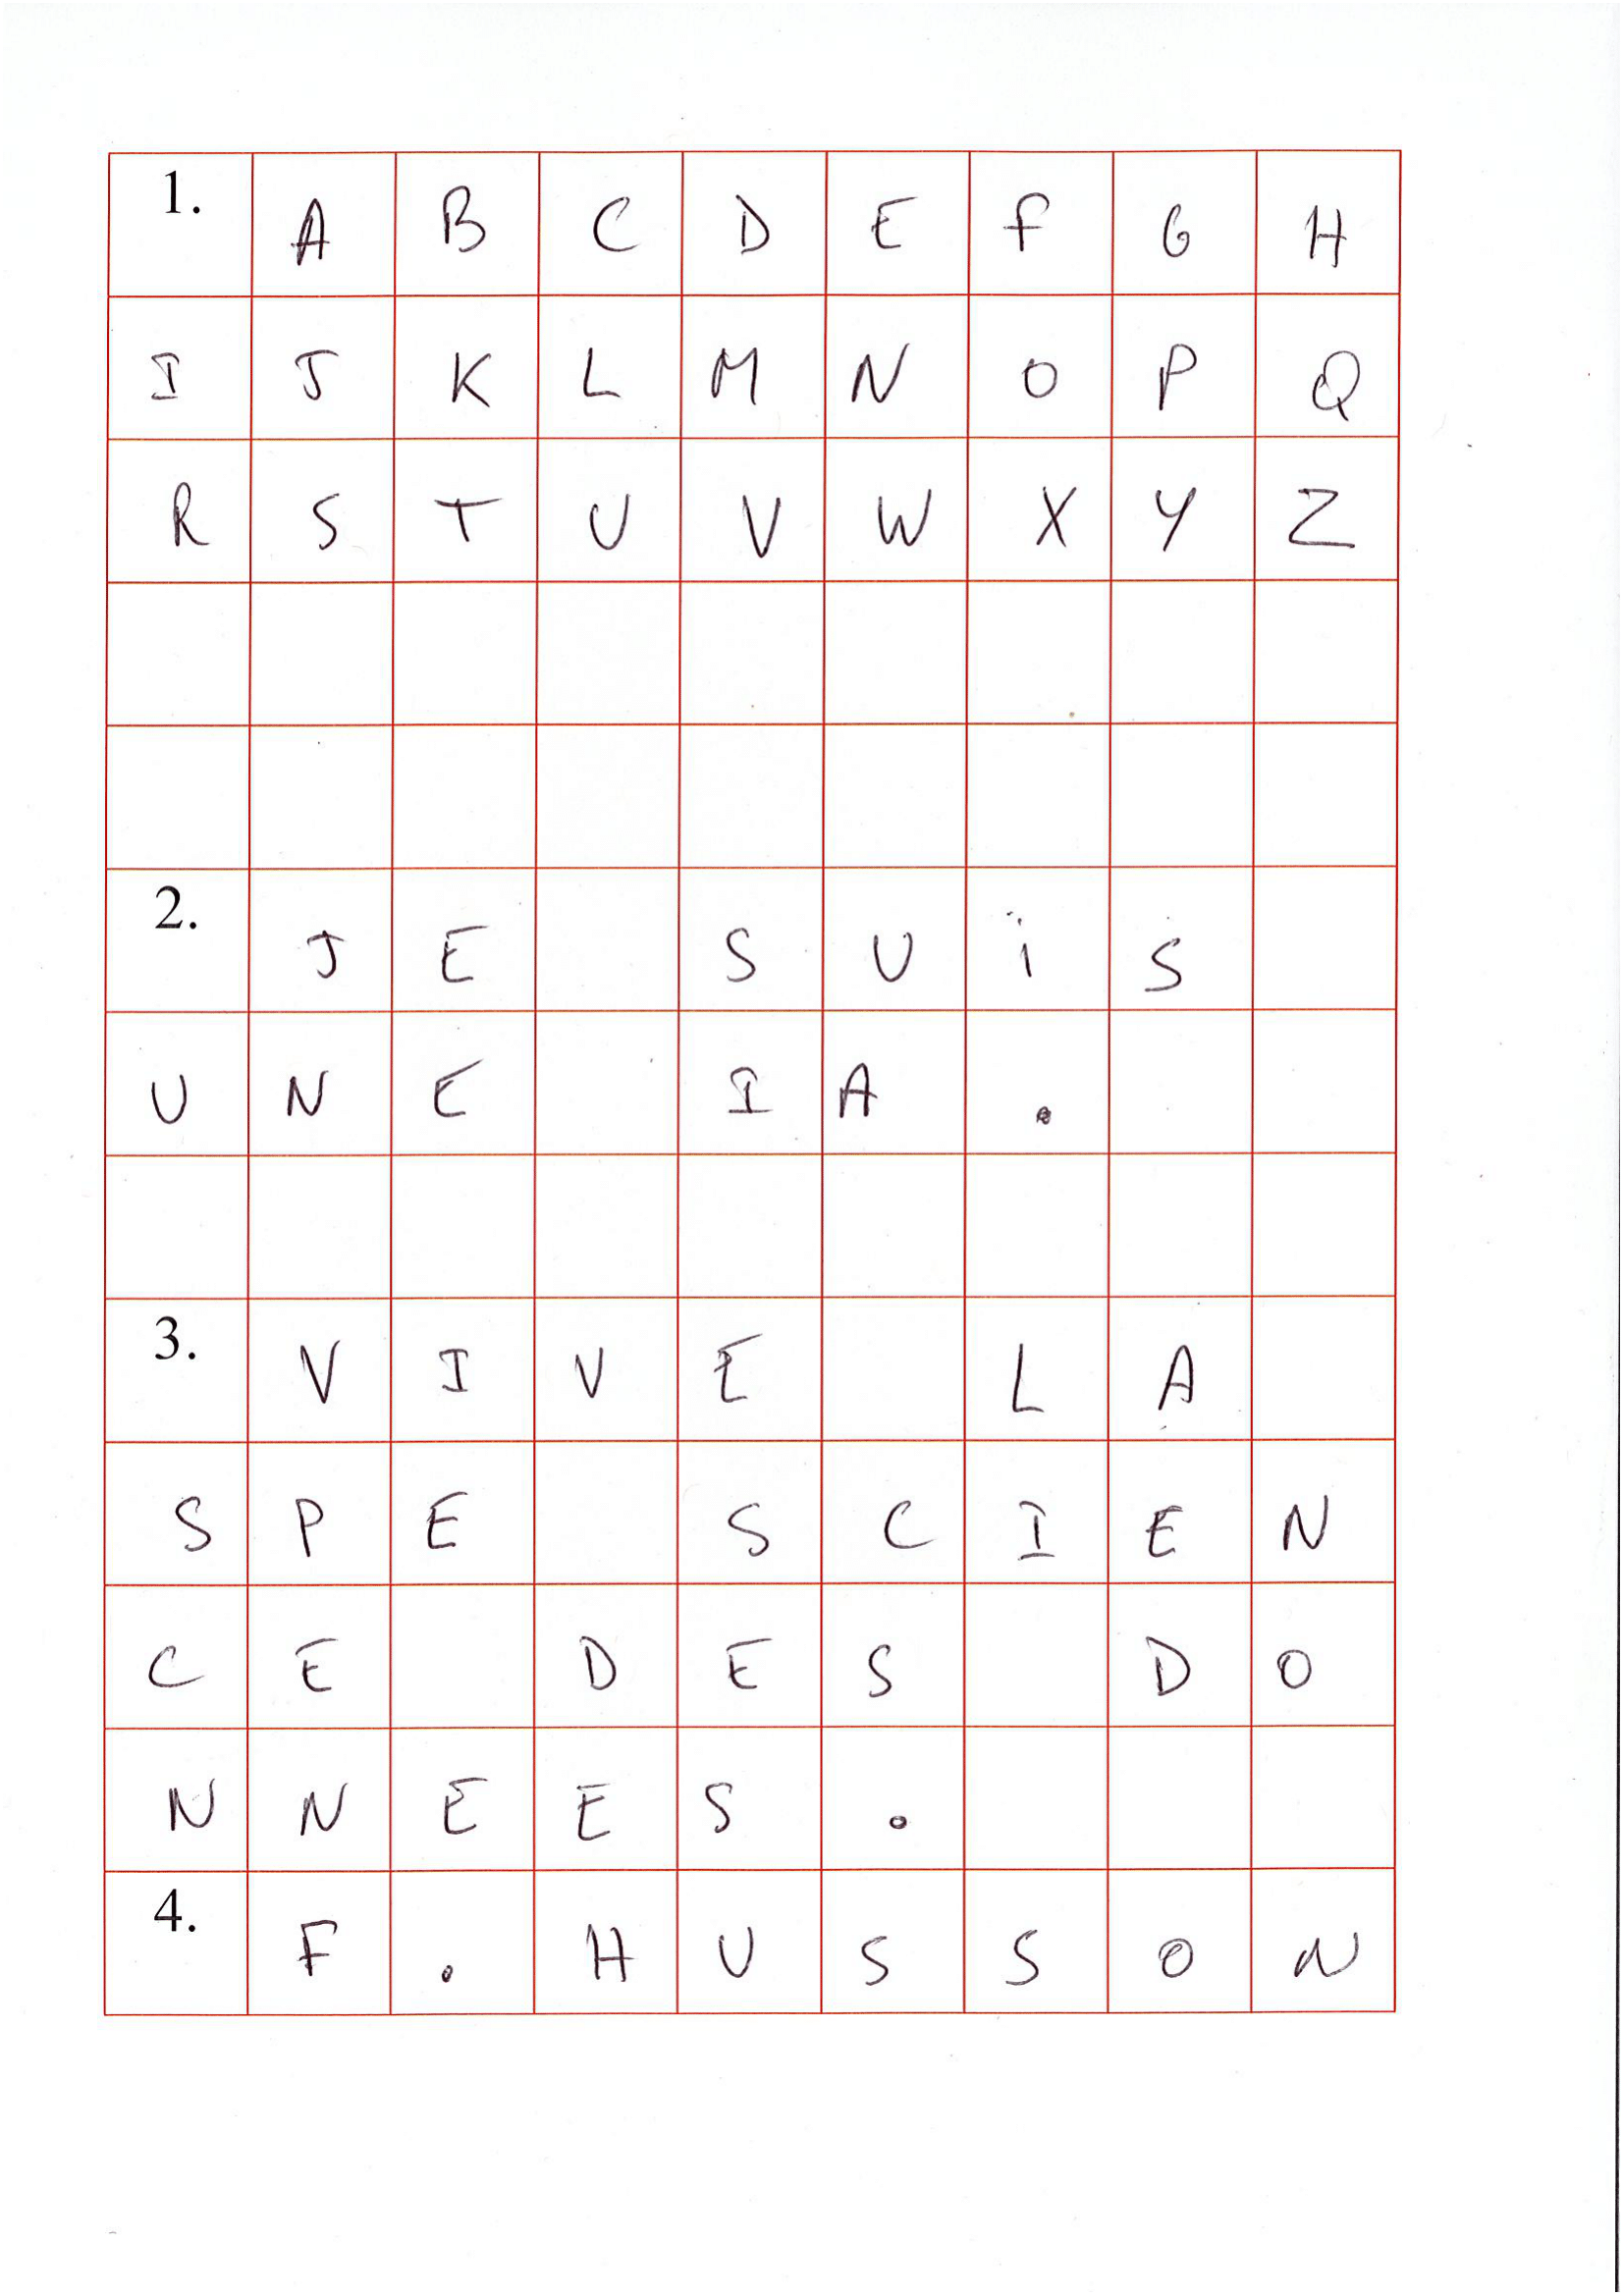 1. A B C D E F G H
I J K L M N O P Q
R S T U V W X Y Z
2. J E S U i S
U N E I A .
3. V I V E L A
S P E S C I E N
C E D E S D O
N N E E S .
4. F . H U S S O N